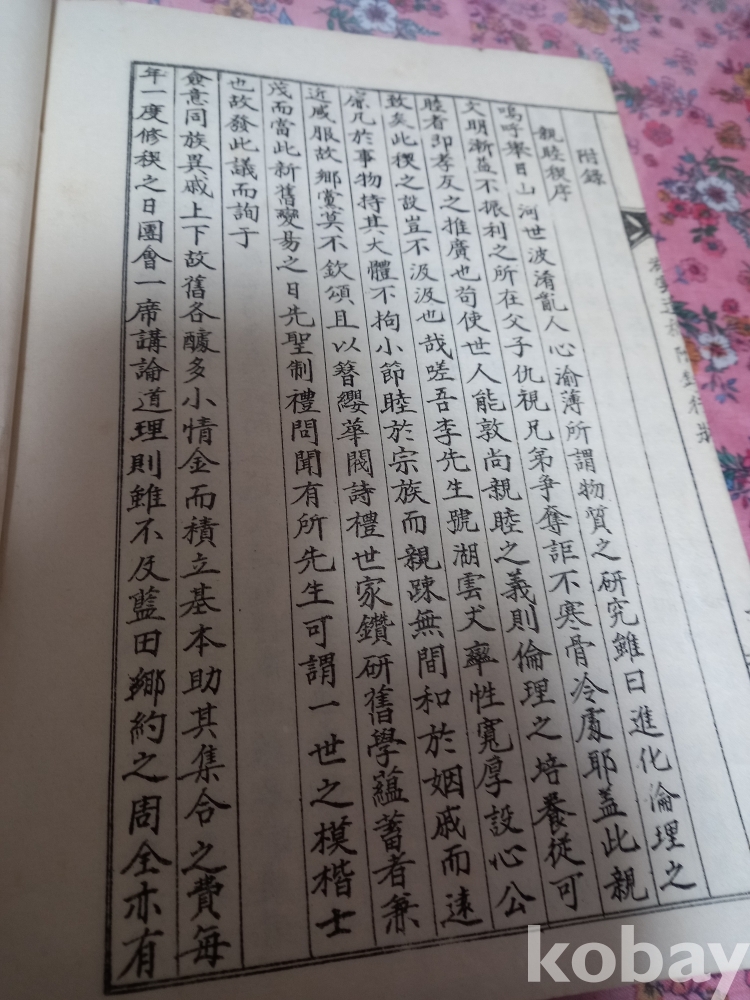 附錄
親睦稧序
嗚呼擧目山河世波淆亂人心渝薄所謂物質之硏究雖曰進化倫理之
文明漸益不振利之所在父子仇視兄弟爭奪詎不寒骨冷處耶盖此親
睦者卽孝友之推廣也苟使世人能敦尙親睦之義則倫理之培養從可
致矣此稧之設豈不汲汲也哉嗟吾李先生號湖雲丈率性寬厚設心公
凡於事物持其大體不拘小節睦於宗族而親踈無間和於姻戚而遠
近咸服故鄕黨莫不欽頌且以簪纓華閥詩禮世家鑽研舊學蘊蓄者兼
茂而當此新舊變易之日先聖制禮問聞有所先生可謂一世之模楷士
也故發此議而詢于
僉意同族異戚上下故舊各醵多小情金而積立基本助其集合之費每
年一度修稧之日團會一席講論道理則雖不及藍田鄕約之周全亦有
kobay